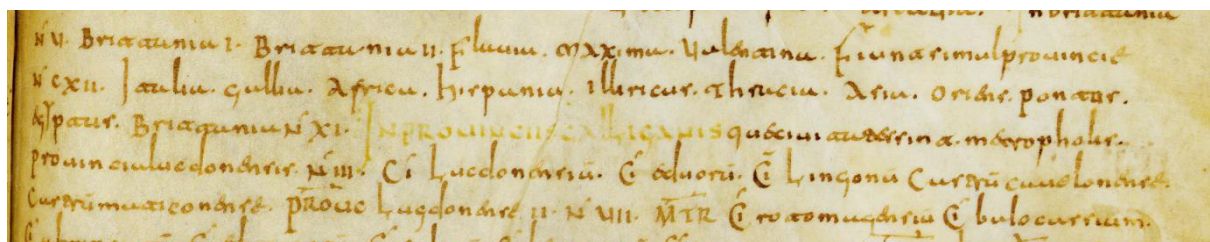 N VI. Brittaunia I. Brittaunia II. Flavia. Maxima. Valentina. Fiunt simul provincie
N CXII. Italia. Gallia. Africa. hispania. Illiricus. Thracia. Asia. Oriens. pontus.
Egiptus. Brittaunia N XI. IN PROVINCIIS GALLICANIS que civitates sint. metropholis.
provincia lucdonensis N III. Ci Lucdonensiū. Ci eduorū. Ci Lingonū Castrū cavelonense.
Castrū matisconense. PROVC Lugdonense II. N VII. MTR Ci rotomagensiū Ci bulocassium.